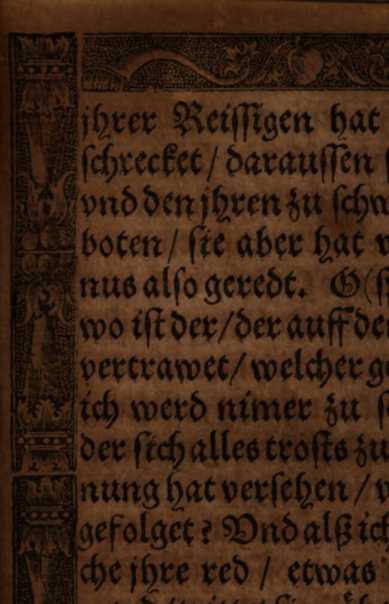 jhrer Reissigen hat
schrecket / daraussen
vnd den jhren zu schw
boten / sie aber hat
nus also geredt. O (
wo ist der / der auff de
vertrawet / welcher g
ich werd nimer zu s
der sich alles trosts zu
nung hat versehen / v
gefolget? Vnd alß ich
che jhre red / etwas